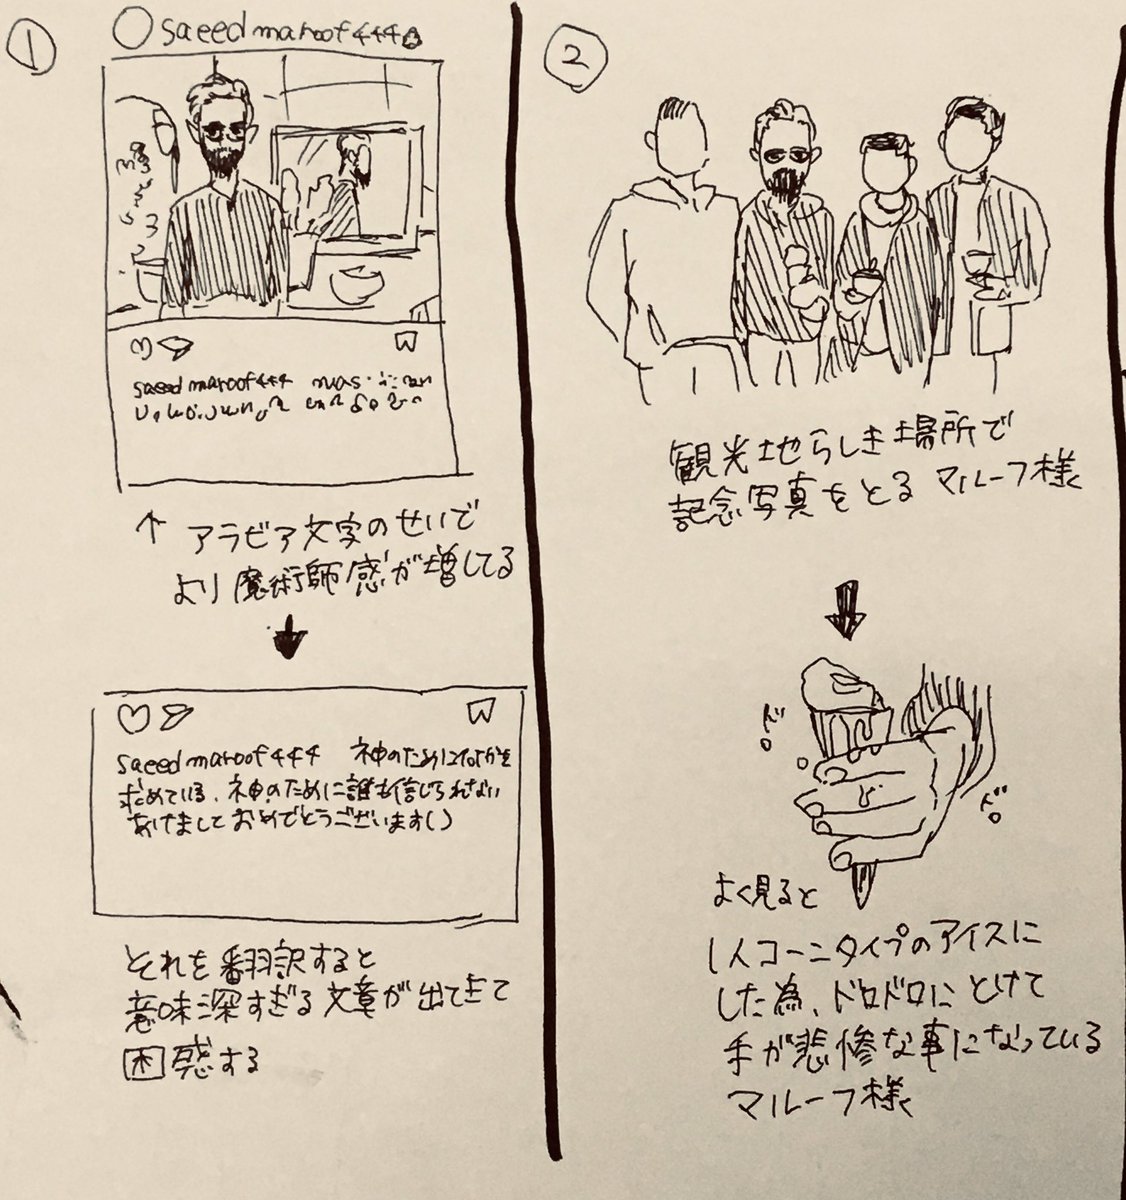 ①
saeedmaroof444
saeedmaroof444
↑ アラビア文字のせいで
より魔術師感が増してる
saeedmaroof444 神のために何かを
求めている、神のために誰も信じられない
あけましておめでとうございます()
それを翻訳すると
意味深すぎる文章が出てきて
困惑する
②
観光地らしき場所で
記念写真をとるマルーフ様
ド
ド
よく見ると
1人コーンタイプのアイスに
した為、ドロドロにとけて
手が悲惨な事になっている
マルーフ様